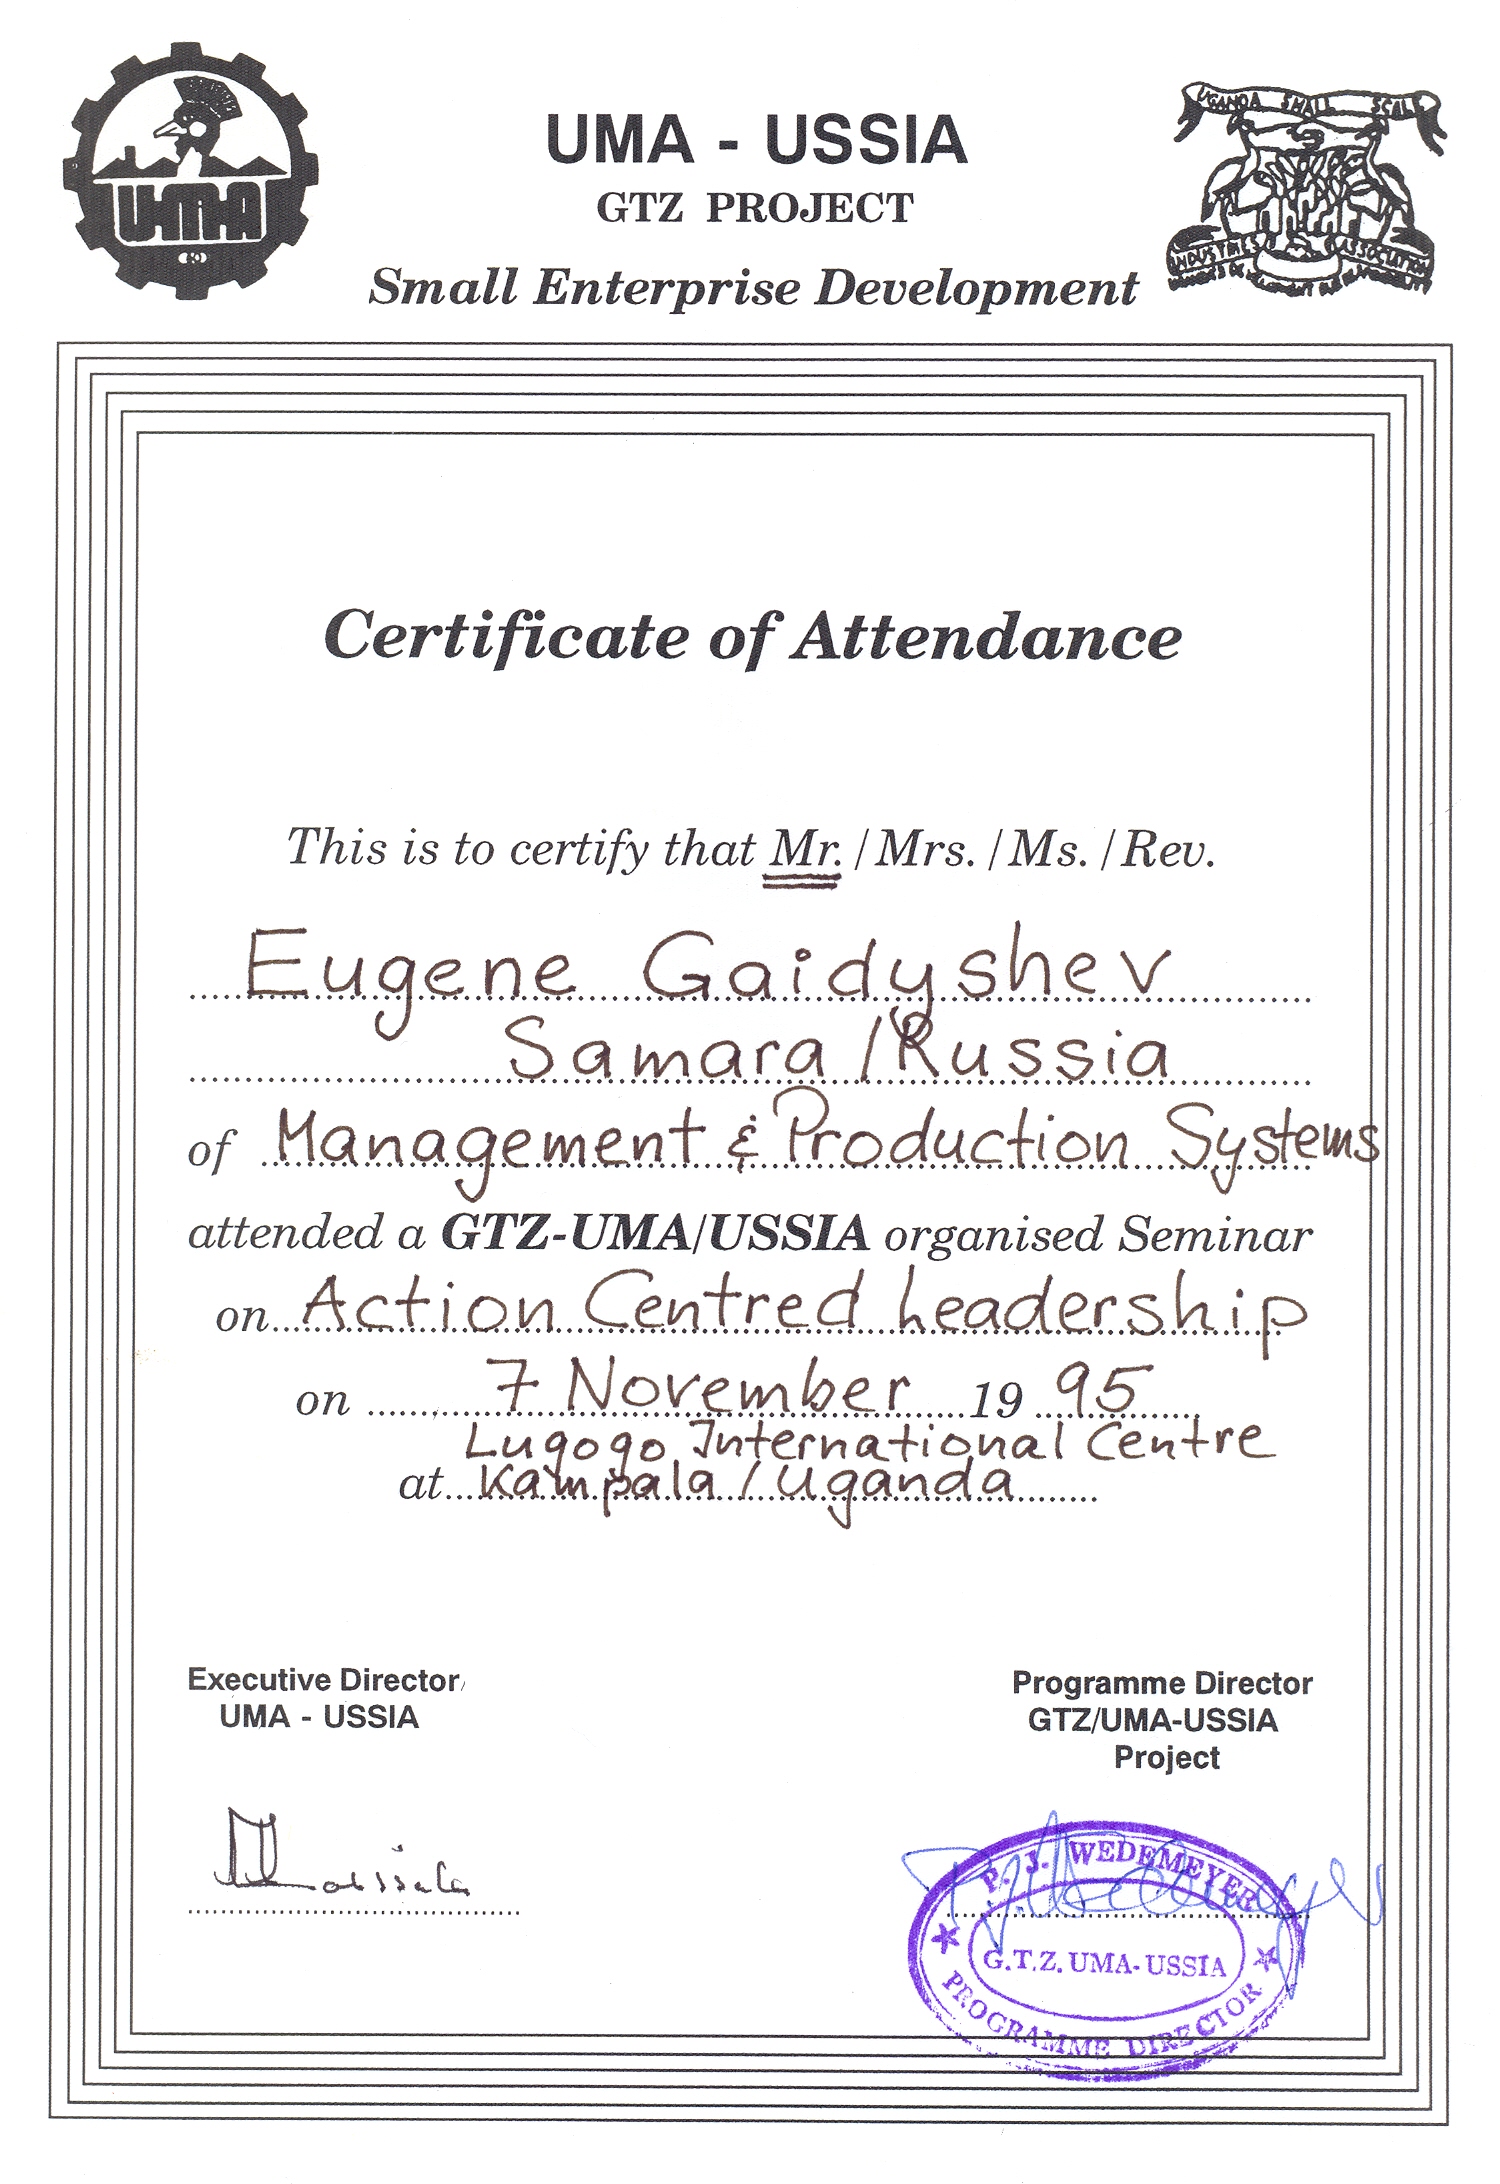 UMA
UGANDA SMALL SCALE
INDUSTRIES ASSOCIATION
UMA - USSIA
GTZ PROJECT
Small Enterprise Development
Certificate of Attendance
This is to certify that Mr. / Mrs. / Ms. / Rev.
Eugene Gaidyshev
Samara / Russia
of Management & Production Systems
attended a GTZ-UMA/USSIA organised Seminar
on Action Centred Leadership
on 7 November 19 95
Lugogo International Centre
at Kampala / Uganda
Executive Director
UMA - USSIA
Programme Director
GTZ/UMA-USSIA
Project
P. J. WEDEMEYER
G.T.Z. UMA-USSIA
PROGRAMME DIRECTOR